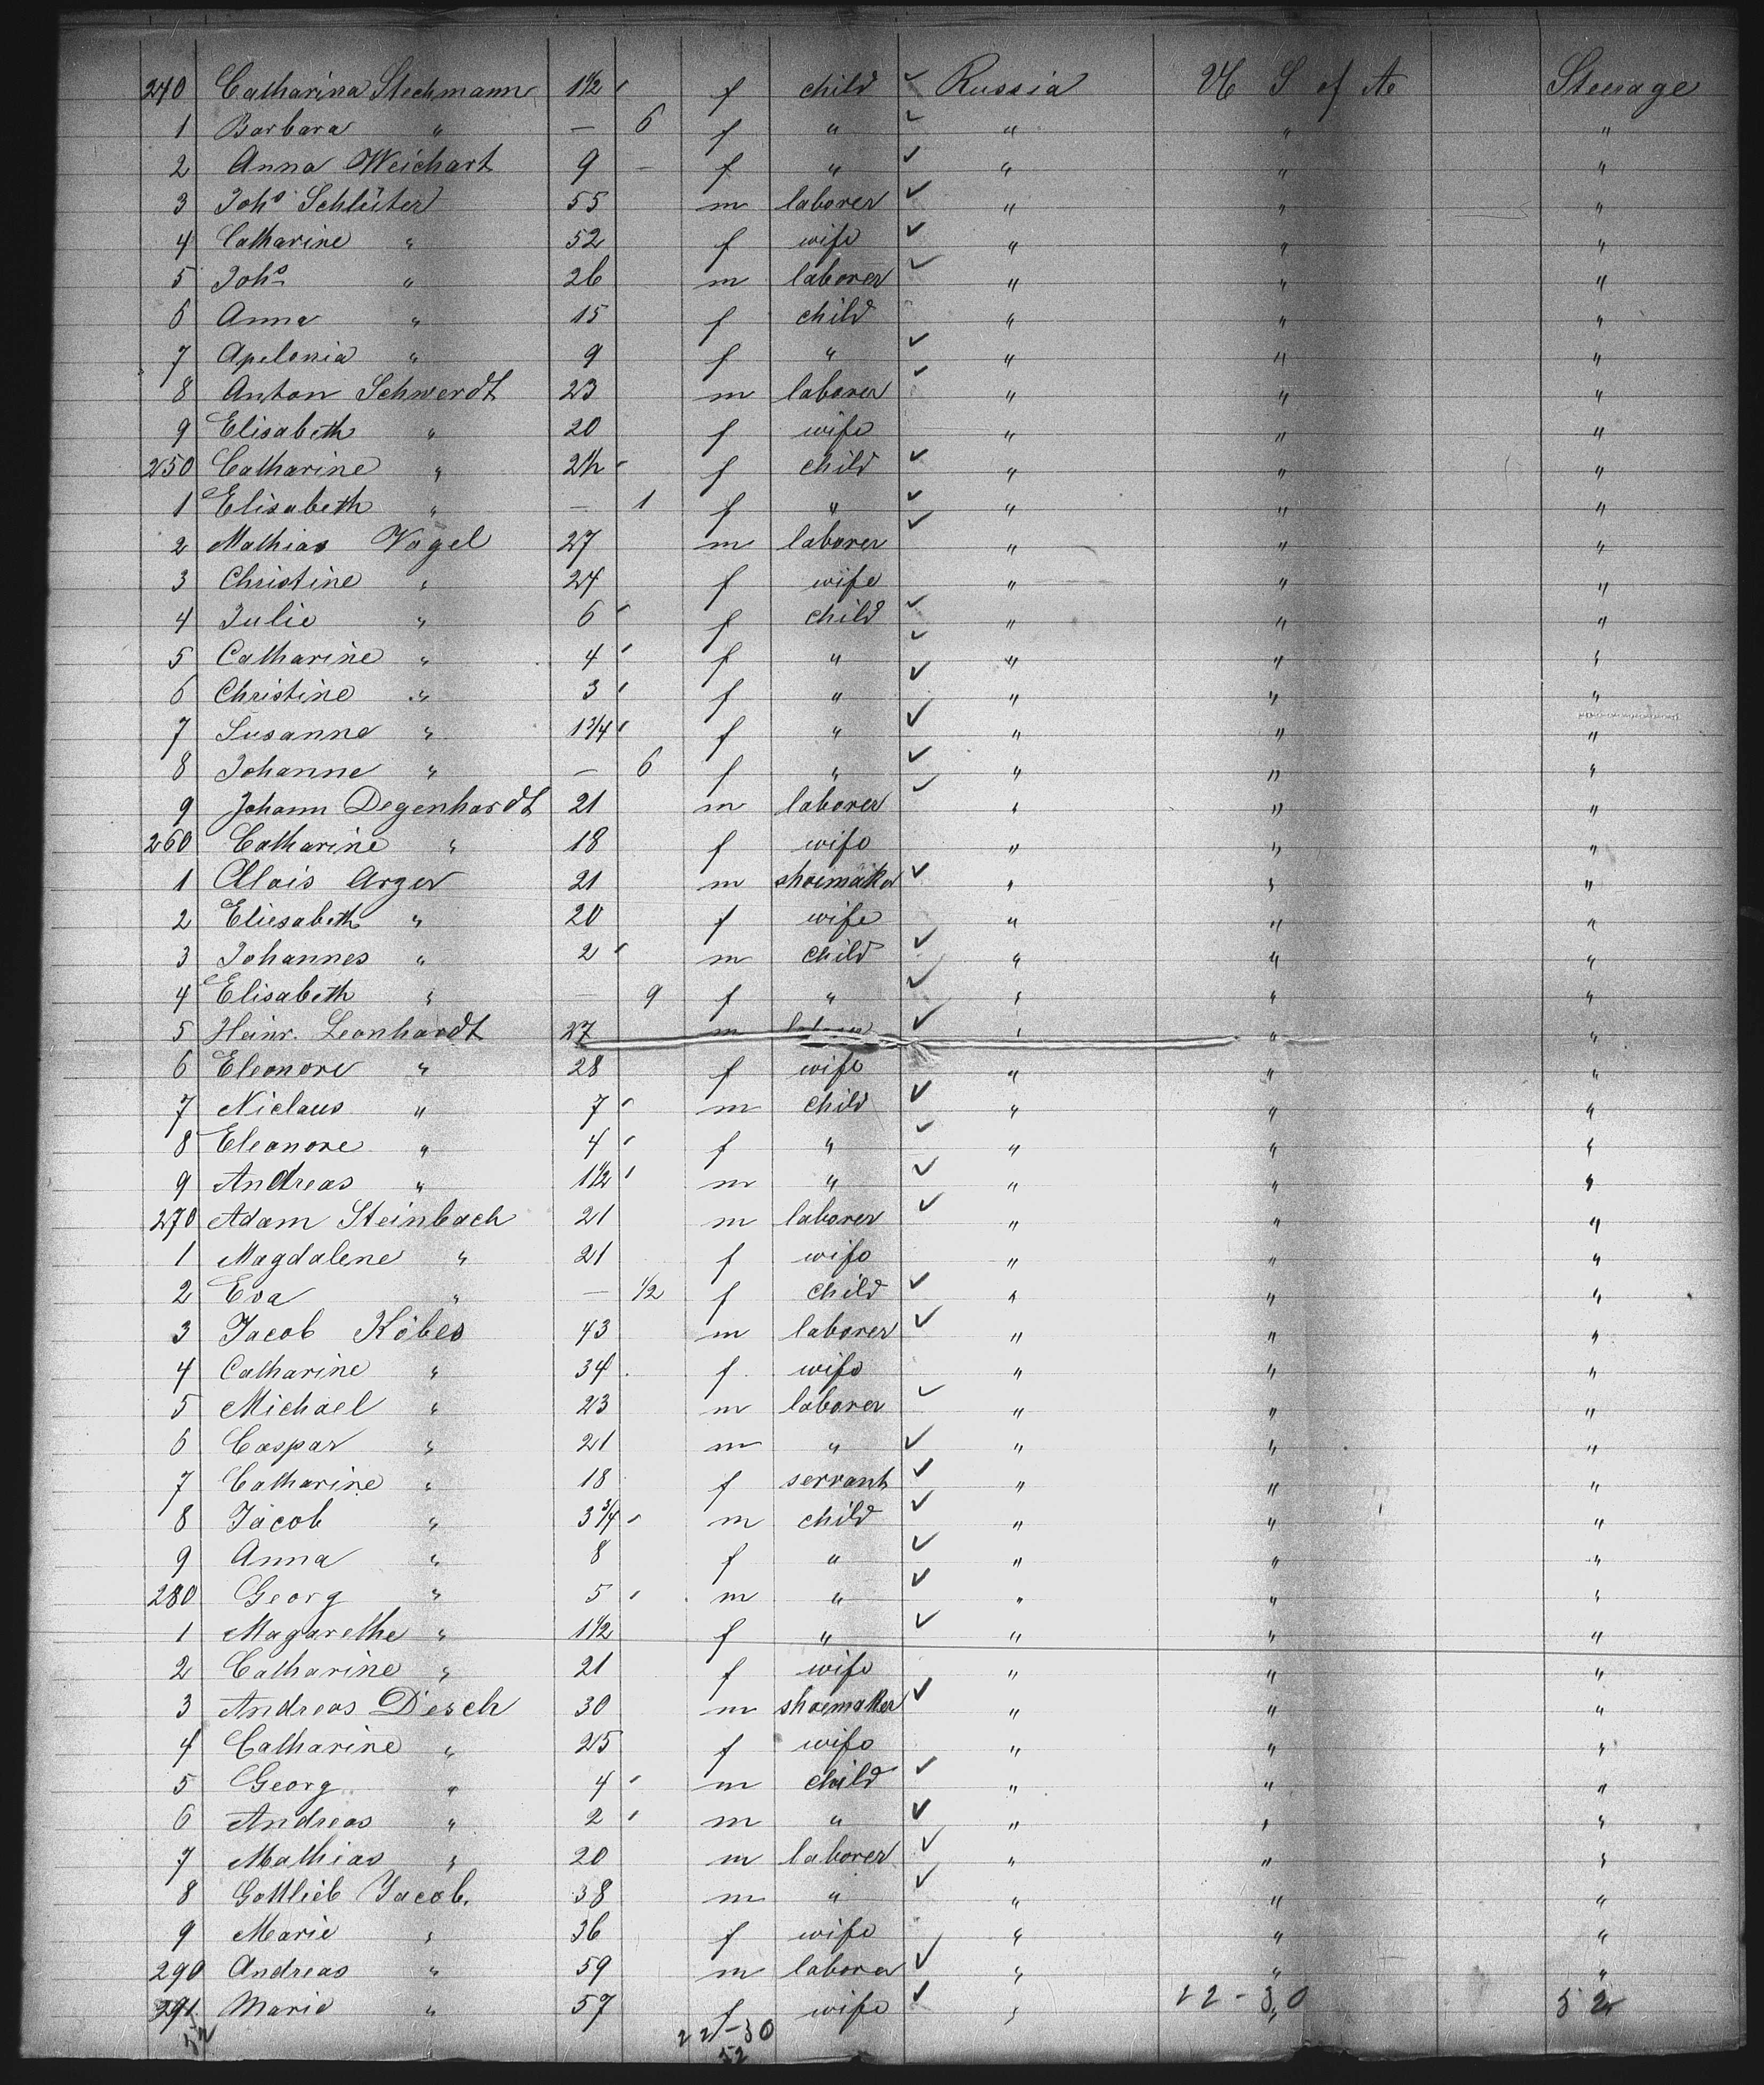 240 Catharina Stechmann 1 1/2 f child Russia U S of A Steerage
1 Barbara " — 6 f " " " "
2 Anna Weichart 9 — f " " " "
3 Johs Schlüter 55 m laborer " " "
4 Catharine " 52 f wife " " "
5 Johs " 26 m laborer " " "
6 Anna " 15 f child " " "
7 Apelonia " 9 f " " " "
8 Anton Schwerdt 23 m laborer " " "
9 Elisabeth " 20 f wife " " "
250 Catharine " 2 1/2 f child " " "
1 Elisabeth " — 1 f " " " "
2 Mathias Vogel 27 m laborer " " "
3 Christine " 24 f wife " " "
4 Julie " 6 f child " " "
5 Catharine " 4 f " " " "
6 Christine " 3 f " " " "
7 Susanne " 1 3/4 f " " " "
8 Johanne " — 6 f " " " "
9 Johann Degenhardt 21 m laborer " " "
260 Catharine " 18 f wife " " "
1 Alois Arger 21 m shoemaker " " "
2 Eliesabeth " 20 f wife " " "
3 Johannes " 2 m child " " "
4 Elisabeth " — 9 f " " " "
5 Heinr. Leonhardt 27 m laborer " " "
6 Eleonore " 28 f wife " " "
7 Niclaus " 7 m child " " "
8 Eleonore " 4 f " " " "
9 Andreas " 1 1/2 m " " " "
270 Adam Steinbach 21 m laborer " " "
1 Magdalene " 21 f wife " " "
2 Eva " — 1/2 f child " " "
3 Jacob Köbes 43 m laborer " " "
4 Catharine " 34 f wife " " "
5 Michael " 23 m laborer " " "
6 Caspar " 21 m " " " "
7 Catharine " 18 f servant " " "
8 Jacob " 3 3/4 m child " " "
9 Anna " 8 f " " " "
280 Georg " 5 m " " " "
1 Magarethe " 1 1/2 f " " " "
2 Catharine " 21 f wife " " "
3 Andreas Desch 30 m shoemaker " " "
4 Catharine " 25 f wife " " "
5 Georg " 4 m child " " "
6 Andreas " 2 m " " " "
7 Mathias " 20 m laborer " " "
8 Gottlieb Jacob. 38 m " " " "
9 Marie " 36 f wife " " "
290 Andreas " 59 m laborer " " "
291 Marie " 57 f wife " 22-30 " 52
52 22-30
52